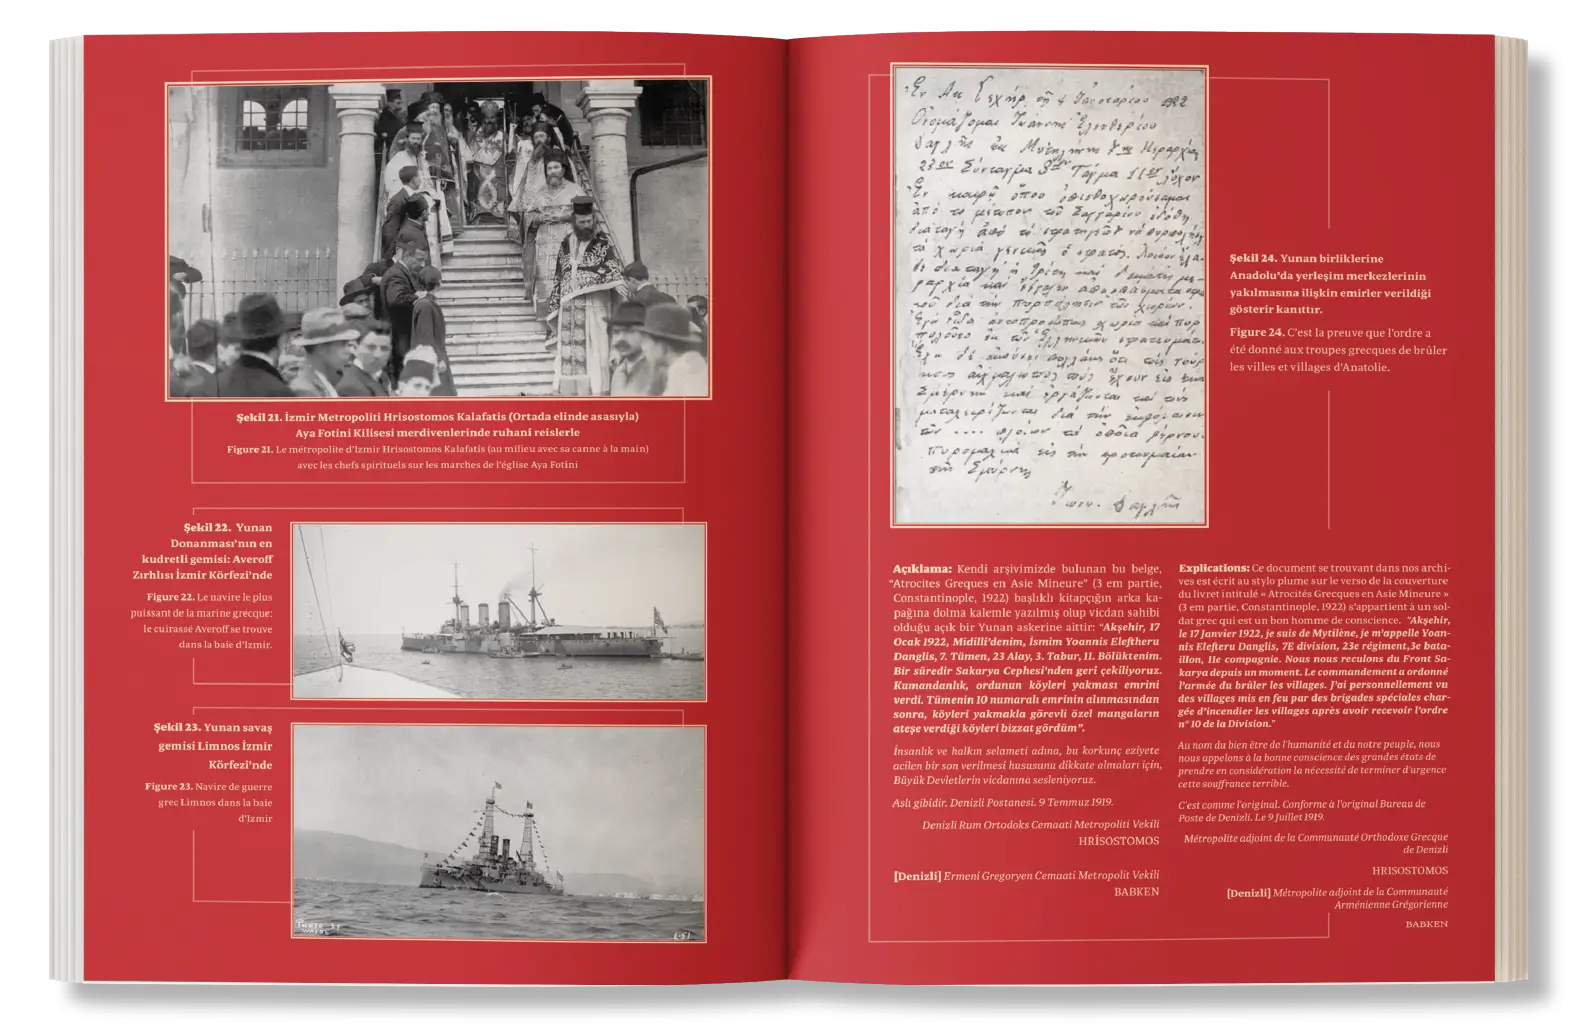 Şekil 21. İzmir Metropoliti Hrisostomos Kalafatis (Ortada elinde asasıyla)
Aya Fotini Kilisesi merdivenlerinde ruhani reislerle
Figure 21. Le métropolite d'Izmir Hrisostomos Kalafatis (au milieu avec sa canne à la main)
avec les chefs spirituels sur les marches de l'église Aya Fotini
Şekil 22. Yunan
Donanması'nın en
kudretli gemisi: Averoff
Zırhlısı İzmir Körfezi'nde
Figure 22. Le navire le plus
puissant de la marine grecque:
le cuirassé Averoff se trouve
dans la baie d'Izmir.
Şekil 23. Yunan savaş
gemisi Limnos İzmir
Körfezi'nde
Figure 23. Navire de guerre
grec Limnos dans la baie
d'Izmir
PHOTO BY
E-51
Ἐν Ἀκ Σεχήρ τῇ 4 Ἰανουαρίου 1922
Ὀνομάζομαι Ἰωάννης Ἐλευθερίου
Δαγλῆς ἐκ Μυτιλήνης 7ης Μεραρχίας
23ον Σύνταγμα 3ον Τάγμα 11ον λόχον
Ἐν καιρῷ ὅπου ὀπισθοχωρούσαμε
ἀπό το μέτωπον τοῦ Σαγγαρίου ἐδόθη
διαταγή ἀπό
τά χωριά ὁ στρατός.
διά τήν πυρπόλησιν τῶν χωρίων.
τῆς Σμύρνης
Ἰωαν. Δαγλῆς
Şekil 24. Yunan birliklerine
Anadolu'da yerleşim merkezlerinin
yakılmasına ilişkin emirler verildiği
gösterir kanıttır.
Figure 24. C'est la preuve que l'ordre a
été donné aux troupes grecques de brûler
les villes et villages d'Anatolie.
Açıklama: Kendi arşivimizde bulunan bu belge,
"Atrocites Greques en Asie Mineure" (3 em partie,
Constantinople, 1922) başlıklı kitapçığın arka ka-
pağına dolma kalemle yazılmış olup vicdan sahibi
olduğu açık bir Yunan askerine aittir: "Akşehir, 17
Ocak 1922, Midilli'denim, İsmim Yoannis Eleftheru
Danglis, 7. Tümen, 23 Alay, 3. Tabur, 11. Bölüktenim.
Bir süredir Sakarya Cephesi'nden geri çekiliyoruz.
Kumandanlık, ordunun köyleri yakması emrini
verdi. Tümenin 10 numaralı emrinin alınmasından
sonra, köyleri yakmakla görevli özel mangaların
ateşe verdiği köyleri bizzat gördüm".
İnsanlık ve halkın selameti adına, bu korkunç eziyete
acilen bir son verilmesi hususunu dikkate almaları için,
Büyük Devletlerin vicdanına sesleniyoruz.
Aslı gibidir. Denizli Postanesi. 9 Temmuz 1919.
Denizli Rum Ortodoks Cemaati Metropoliti Vekili
HRİSOSTOMOS
[Denizli] Ermeni Gregoryen Cemaati Metropolit Vekili
BABKEN
Explications: Ce document se trouvant dans nos archi-
ves est écrit au stylo plume sur le verso de la couverture
du livret intitulé « Atrocités Grecques en Asie Mineure »
(3 em partie, Constantinople, 1922) s'appartient à un sol-
dat grec qui est un bon homme de conscience. "Akşehir,
le 17 Janvier 1922, je suis de Mytilène, je m'appelle Yoan-
nis Elefteru Danglis, 7E division, 23e régiment,3e bata-
illon, 11e compagnie. Nous nous reculons du Front Sa-
karya depuis un moment. Le commandement a ordonné
l'armée du brûler les villages. J'ai personnellement vu
des villages mis en feu par des brigades spéciales char-
gée d'incendier les villages après avoir recevoir l'ordre
n° 10 de la Division."
Au nom du bien être de l'humanité et du notre peuple, nous
nous appelons à la bonne conscience des grandes états de
prendre en considération la nécessité de terminer d'urgence
cette souffrance terrible.
C'est comme l'original. Conforme à l'original Bureau de
Poste de Denizli. Le 9 Juillet 1919.
Métropolite adjoint de la Communauté Orthodoxe Grecque
de Denizli
HRISOSTOMOS
[Denizli] Métropolite adjoint de la Communauté
Arménienne Grégorienne
BABKEN